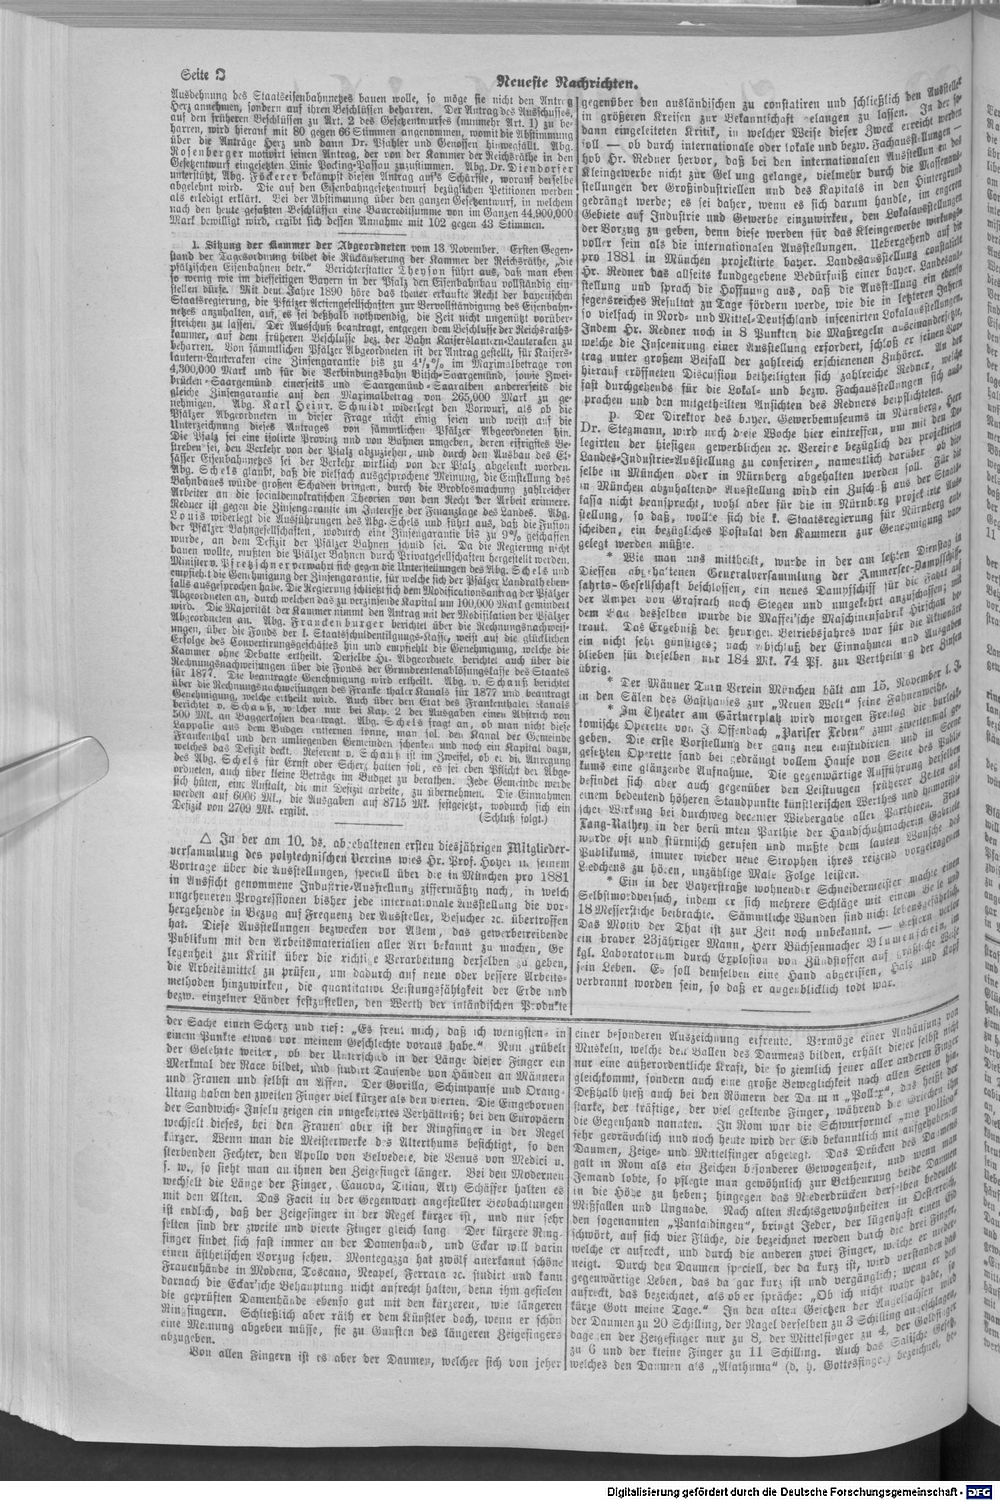 Seite 2
Neueste Nachrichten.
Ausdehnung des Staatseisenbahnnetzes bauen wolle, so möge sie nicht den Antrag
Herz annehmen, sondern auf ihren Beschlüssen beharren. Der Antrag des Ausschusses,
auf den früheren Beschlüssen zu Art. 2 des Gesetzentwurfes (nunmehr Art. 1) zu be-
harren, wird hierauf mit 80 gegen 66 Stimmen angenommen, womit die Abstimmung
über die Anträge Herz und dann Dr. Pfahler und Genossen hinwegfällt. Abg.
Rosenberger motivirt seinen Antrag, der von der Kammer der Reichsräthe in den
Gesetzentwurf eingesetzten Linie Pocking-Passau zuzustimmen. Abg. Dr. Diendorfer
unterstützt, Abg. Föckerer bekämpft diesen Antrag auf's Schärfste, worauf derselbe
abgelehnt wird. Die auf den Eisenbahngesetzentwurf bezüglichen Petitionen werden
als erledigt erklärt. Bei der Abstimmung über den ganzen Gesetzentwurf, in welchem
nach den heute gefaßten Beschlüssen eine Baucreditsumme von im Ganzen 44,900,000
Mark bewilligt wird, ergibt sich dessen Annahme mit 102 gegen 43 Stimmen.
1. Sitzung der Kammer der Abgeordneten vom 13. November. Ersten Gegen-
stand der Tagesordnung bildet die Rückäußerung der Kammer der Reichsräthe, „die
pfälzischen Eisenbahnen betr.“ Berichterstatter Theyson führt aus, daß man eben
so wenig wie im diesseitigen Bayern in der Pfalz den Eisenbahnbau vollständig ein-
stellen dürfe. Mit dem Jahre 1890 höre das theuer erkaufte Recht der bayerischen
Staatsregierung, die Pfälzer Actiengesellschaften zur Vervollständigung des Eisenbahn-
netzes anzuhalten, auf, es sei deßhalb nothwendig, die Zeit nicht ungenützt vorüber-
streichen zu lassen. Der Ausschuß beantragt, entgegen dem Beschlusse der Reichsraths-
kammer, auf dem früheren Beschlusse bez. der Bahn Kaiserslautern-Lauterecken zu
beharren. Von sämmtlichen Pfälzer Abgeordneten ist der Antrag gestellt, für Kaisers-
lautern-Lauterecken eine Zinsengarantie bis zu 4½% im Maximalbetrage von
4,300,000 Mark und für die Verbindungsbahn Bitsch-Saargemünd, sowie Zwei-
brücken-Saargemünd einerseits und Saargemünd-Saaralben andererseits die
gleiche Zinsengarantie auf den Maximalbetrag von 265,000 Mark zu ge-
nehmigen. Abg. Karl Heinr. Schmidt widerlegt den Vorwurf, als ob die
Pfälzer Abgeordneten in dieser Frage nicht einig seien und weist auf die
Unterzeichnung dieses Antrages von sämmtlichen Pfälzer Abgeordneten hin.
Die Pfalz sei eine isolirte Provinz und von Bahnen umgeben, deren eifrigstes Be-
streben sei, den Verkehr von der Pfalz abzuziehen, und durch den Ausbau des El-
sässer Eisenbahnnetzes sei der Verkehr wirklich von der Pfalz abgelenkt worden.
Abg. Schels glaubt, daß die vielfach ausgesprochene Meinung, die Einstellung des
Bahnbaues würde großen Schaden bringen, durch die Brodlosmachung zahlreicher
Arbeiter an die socialdemokratischen Theorien von dem Recht der Arbeit erinnere.
Redner ist gegen die Zinsengarantie im Interesse der Finanzlage des Landes. Abg.
Louis widerlegt die Ausführungen des Abg. Schels und führt aus, daß die Fusion
der Pfälzer Bahngesellschaften, wodurch eine Zinsengarantie bis zu 9% geschaffen
wurde, an dem Defizit der Pfälzer Bahnen schuld sei. Da die Regierung nicht
bauen wollte, mußten die Pfälzer Bahnen durch Privatgesellschaften hergestellt werden.
Minister v. Pfretzschner verwahrt sich gegen die Unterstellungen des Abg. Schels und
empfiehlt die Genehmigung der Zinsengarantie, für welche sich der Pfälzer Landrath eben-
falls ausgesprochen habe. Die Regierung schließt sich dem Modificationsantrag der Pfälzer
Abgeordneten an, durch welchen das zu verzinsende Kapital um 100,000 Mark gemindert
wird. Die Majorität der Kammer nimmt den Antrag mit der Modifikation der Pfälzer
Abgeordneten an. Abg. Franckenburger berichtet über die Rechnungsnachweis-
ungen, über die Fonds der k. Staatsschuldentilgungs-Kasse, weist auf die glücklichen
Erfolge des Convertirungsgeschäftes hin und empfiehlt die Genehmigung, welche die
Kammer ohne Debatte ertheilt. Derselbe Hr. Abgeordnete berichtet auch über die
Rechnungsnachweisungen über die Fonds der Grundrentenablösungskasse des Staates
für 1877. Die beantragte Genehmigung wird ertheilt. Abg. v. Schauß berichtet
über die Rechnungsnachweisungen des Frankenthaler Kanals für 1877 und beantragt
Genehmigung, welche ertheilt wird. Auch über den Etat des Frankenthaler Kanals
berichtet v. Schauß, welcher nur bei Kap. 2 der Ausgaben einen Abstrich von
500 Mk. an Baggerkosten beantragt. Abg. Schels fragt an, ob man nicht diese
Lappalie aus dem Budget entfernen könne, man soll den Kanal der Gemeinde
Frankenthal und den umliegenden Gemeinden schenken und noch ein Kapital dazu,
welches das Defizit deckt. Referent v. Schauß ist im Zweifel, ob er die Anregung
des Abg. Schels für Ernst oder Scherz halten soll, es sei eben Pflicht der Abge-
ordneten, auch über kleine Beträge im Budget zu berathen. Jede Gemeinde werde
sich hüten, eine Anstalt, die mit Defizit arbeite, zu übernehmen. Die Einnahmen
werden auf 6006 Mk., die Ausgaben auf 8715 Mk. festgesetzt, wodurch sich ein
Defizit von 2709 Mk. ergibt. (Schluß folgt.)
△ In der am 10. ds. abgehaltenen ersten diesjährigen Mitglieder-
versammlung des polytechnischen Vereins wies Hr. Prof. Hoyer in seinem
Vortrage über die Ausstellungen, speciell über die in München pro 1881
in Aussicht genommene Industrie-Ausstellung ziffermäßig nach, in welch
ungeheueren Progressionen bisher jede internationale Ausstellung die vor-
hergehende in Bezug auf Frequenz der Aussteller, Besucher ꝛc. übertroffen
hat. Diese Ausstellungen bezwecken vor Allem, das gewerbetreibende
Publikum mit den Arbeitsmaterialien aller Art bekannt zu machen, Ge
legenheit zur Kritik über die richtige Verarbeitung derselben zu geben,
die Arbeitsmittel zu prüfen, um dadurch auf neue oder bessere Arbeits-
methoden hinzuwirken, die quantitative Leistungsfähigkeit der Erde und
bezw. einzelner Länder festzustellen, den Werth der inländischen Produkte
gegenüber den ausländischen zu constatiren und schließlich den Aussteller
in größeren Kreisen zur Bekanntschaft gelangen zu lassen. In der so-
dann eingeleiteten Kritik, in welcher Weise dieser Zweck erreicht werden
soll — ob durch internationale oder lokale und bezw. Fachausstellungen —
hob Hr. Redner hervor, daß bei den internationalen Ausstellungen das
Kleingewerbe nicht zur Geltung gelange, vielmehr durch die Massenaus-
stellungen der Großindustriellen und des Kapitals in den Hintergrund
gedrängt werde; es sei daher, wenn es sich darum handle, im engeren
Gebiete auf Industrie und Gewerbe einzuwirken, den Lokalausstellungen
der Vorzug zu geben, denn diese werden für das Kleingewerbe wirkungs-
voller sein als die internationalen Ausstellungen. Uebergehend auf die
pro 1881 in München projektirte bayer. Landesausstellung constatirte
Hr. Redner das allseits kundgegebene Bedürfniß einer bayer. Landesaus-
stellung und sprach die Hoffnung aus, daß die Ausstellung ein ebenso
segensreiches Resultat zu Tage fördern werde, wie die in letzteren Jahren
so vielfach in Nord- und Mittel-Deutschland inscenirten Lokalausstellungen.
Indem Hr. Redner noch in 8 Punkten die Maßregeln auseinandersetzte,
welche die Inscenirung einer Ausstellung erfordert, schloß er seinen Vor-
trag unter großem Beifall der zahlreich erschienenen Zuhörer. An der
hierauf eröffneten Discussion betheiligten sich zahlreiche Redner, welche
fast durchgehends für die Lokal- und bezw. Fachausstellungen sich aus-
sprachen und den mitgetheilten Ansichten des Redners beipflichteten.
p. Der Direktor des bayer. Gewerbemuseums in Nürnberg, Herr
Dr. Stegmann, wird noch diese Woche hier eintreffen, um mit den De-
legirten der hiesigen gewerblichen ꝛc. Vereine bezüglich der projektirten
Landes-Industrie-Ausstellung zu conferiren, namentlich darüber, ob die-
selbe in München oder in Nürnberg abgehalten werden soll. Für die
in München abzuhaltende Ausstellung wird ein Zuschuß aus der Staats-
kassa nicht beansprucht, wohl aber für die in Nürnberg projektirte Aus-
stellung, so daß, wollte sich die k. Staatsregierung für Nürnberg ent-
scheiden, ein bezügliches Postulat den Kammern zur Genehmigung vor-
gelegt werden müßte.
* Wie man uns mittheilt, wurde in der am letzten Dienstag in
Diessen abgehaltenen Generalversammlung der Ammersee-Dampfschiff-
fahrts-Gesellschaft beschlossen, ein neues Dampfschiff für die Fahrt auf
der Amper von Grafrath nach Stegen und umgekehrt anzuschaffen; mit
dem Bau desselben wurde die Maffei'sche Maschinenfabrik Hirschau be-
traut. Das Ergebniß des heurigen Betriebsjahres war für die Aktionäre
ein nicht sehr günstiges; nach Abschluß der Einnahmen und Ausgaben
blieben für dieselben nur 184 Mk. 74 Pf. zur Vertheilung der Zinsen
übrig.
* Der Männer Turn Verein München hält am 15. November l. J.
in den Sälen des Gasthauses zur „Neuen Welt“ seine Fahnenweihe.
* Im Theater am Gärtnerplatz wird morgen Freitag die burlesk-
komische Operette von J. Offenbach „Pariser Leben“ zum zweitenmal ge-
geben. Die erste Vorstellung der ganz neu einstudirten und in Scene
gesetzten Operette fand bei gedrängt vollem Hause von Seite des Publi-
kums eine glänzende Aufnahme. Die gegenwärtige Aufführung derselben
befindet sich aber auch gegenüber den Leistungen früherer Zeiten auf
einem bedeutend höheren Standpunkte künstlerischen Werthes und humoristi-
scher Wirkung bei durchweg decenter Wiedergabe aller Parthien. Frau
Lang-Rathey in der berühmten Parthie der Handschuhmacherin Gabriele
wurde oft und stürmisch gerufen und mußte dem lauten Wunsche des
Publikums, immer wieder neue Strophen ihres reizend vorgetragenen
Liedchens zu hören, unzählige Male Folge leisten.
* Ein in der Bayerstraße wohnender Schneidermeister machte einen
Selbstmordversuch, indem er sich mehrere Schläge mit einem Beile und
18 Messerstiche beibrachte. Sämmtliche Wunden sind nicht lebensgefährlich.
Das Motiv der That ist zur Zeit noch unbekannt. — Gestern verlor
ein braver 23jähriger Mann, Herr Büchsenmacher Blumenschein, im
kgl. Laboratorium durch Explosion von Zündstoffen auf gräßliche Weise
sein Leben. Es soll demselben eine Hand abgerissen, Hals und Kopf
verbrannt worden sein, so daß er augenblicklich todt war.
der Sache einen Scherz und rief: „Es freut mich, daß ich wenigstens in
einem Punkte etwas vor meinem Geschlechte voraus habe.“ Nun grübelt
der Gelehrte weiter, ob der Unterschied in der Länge dieser Finger ein
Merkmal der Race bildet, und studirt Tausende von Händen an Männern
und Frauen und selbst an Affen. Der Gorilla, Schimpanse und Orang-
Utang haben den zweiten Finger viel kürzer als den vierten. Die Eingebornen
der Sandwich-Inseln zeigen ein umgekehrtes Verhältniß; bei den Europäern
wechselt dieses, bei den Frauen aber ist der Ringfinger in der Regel
kürzer. Wenn man die Meisterwerke des Alterthums besichtigt, so den
sterbenden Fechter, den Apollo von Belvedere, die Venus von Medici u.
s. w., so sieht man an ihnen den Zeigefinger länger. Bei den Modernen
wechselt die Länge der Finger, Canova, Titian, Ary Schäffer halten es
mit den Alten. Das Facit in der Gegenwart angestellter Beobachtungen
ist endlich, daß der Zeigefinger in der Regel kürzer ist, und nur sehr
selten sind der zweite und vierte Finger gleich lang. Der kürzere Ring-
finger findet sich fast immer an der Damenhand, und Eckar will darin
einen ästhetischen Vorzug sehen. Montegazza hat zwölf anerkannt schöne
Frauenhände in Modena, Toscana, Neapel, Ferrara ꝛc. studirt und kann
darnach die Eckar'sche Behauptung nicht aufrecht halten, denn ihm gefielen
die geprüften Damenhände ebenso gut mit den kürzeren, wie längeren
Ringfingern. Schließlich aber räth er dem Künstler doch, wenn er schön
eine Meinung abgeben müsse, sie zu Gunsten des längeren Zeigefingers
abzugeben.
Von allen Fingern ist es aber der Daumen, welcher sich von jeher
einer besonderen Auszeichnung erfreute. Vermöge einer Anhäufung von
Muskeln, welche den Ballen des Daumens bilden, erhält dieser selbst nicht
nur eine außerordentliche Kraft, die so ziemlich jener aller anderen Finger
gleichkommt, sondern auch eine große Beweglichkeit nach allen Seiten hin.
Deßhalb hieß auch bei den Römern der Daumen „Pollex“, das heißt der
starke, der kräftige, der viel geltende Finger, während die Griechen ihn
die Gegenhand nannten. In Rom war die Schwurformel „me pollice“
sehr gebräuchlich und noch heute wird der Eid bekanntlich mit aufgehobenem
Daumen, Zeige- und Mittelfinger abgelegt. Das Drücken des Daumens
galt in Rom als ein Zeichen besonderer Gewogenheit, und wenn man
Jemand lobte, so pflegte man gewöhnlich zur Betheurung beide Daumen
in die Höhe zu heben; hingegen das Niederdrücken derselben bedeutete
Mißfallen und Ungnade. Nach alten Rechtsgewohnheiten in Oesterreich,
den sogenannten „Pantaidingen“, bringt Jeder, der lügenhaft einen Eid
schwört, auf sich vier Flüche, die bezeichnet werden durch die drei Finger,
welche er aufreckt, und durch die anderen zwei Finger, welche er nieder-
neigt. Durch den Daumen speciell, der da kurz ist, wird verstanden das
gegenwärtige Leben, das da gar kurz ist und vergänglich; wenn er den
aufreckt, das bezeichnet, als ob er spräche: „Ob ich nicht wahr habe, so
kürze Gott meine Tage.“ In den alten Gesetzen der Angelsachsen wird
der Daumen zu 20 Schilling, der Nagel derselben zu 3 Schilling angeschlagen,
dagegen der Zeigefinger nur zu 8, der Mittelfinger zu 4, der Goldfinger
zu 6 und der kleine Finger zu 11 Schilling. Auch das Salische Gesetz,
welches den Daumen als „Alathuma“ (d. h. Gottesfinger) bezeichnet, be-
Digitalisierung gefördert durch die Deutsche Forschungsgemeinschaft - DFG